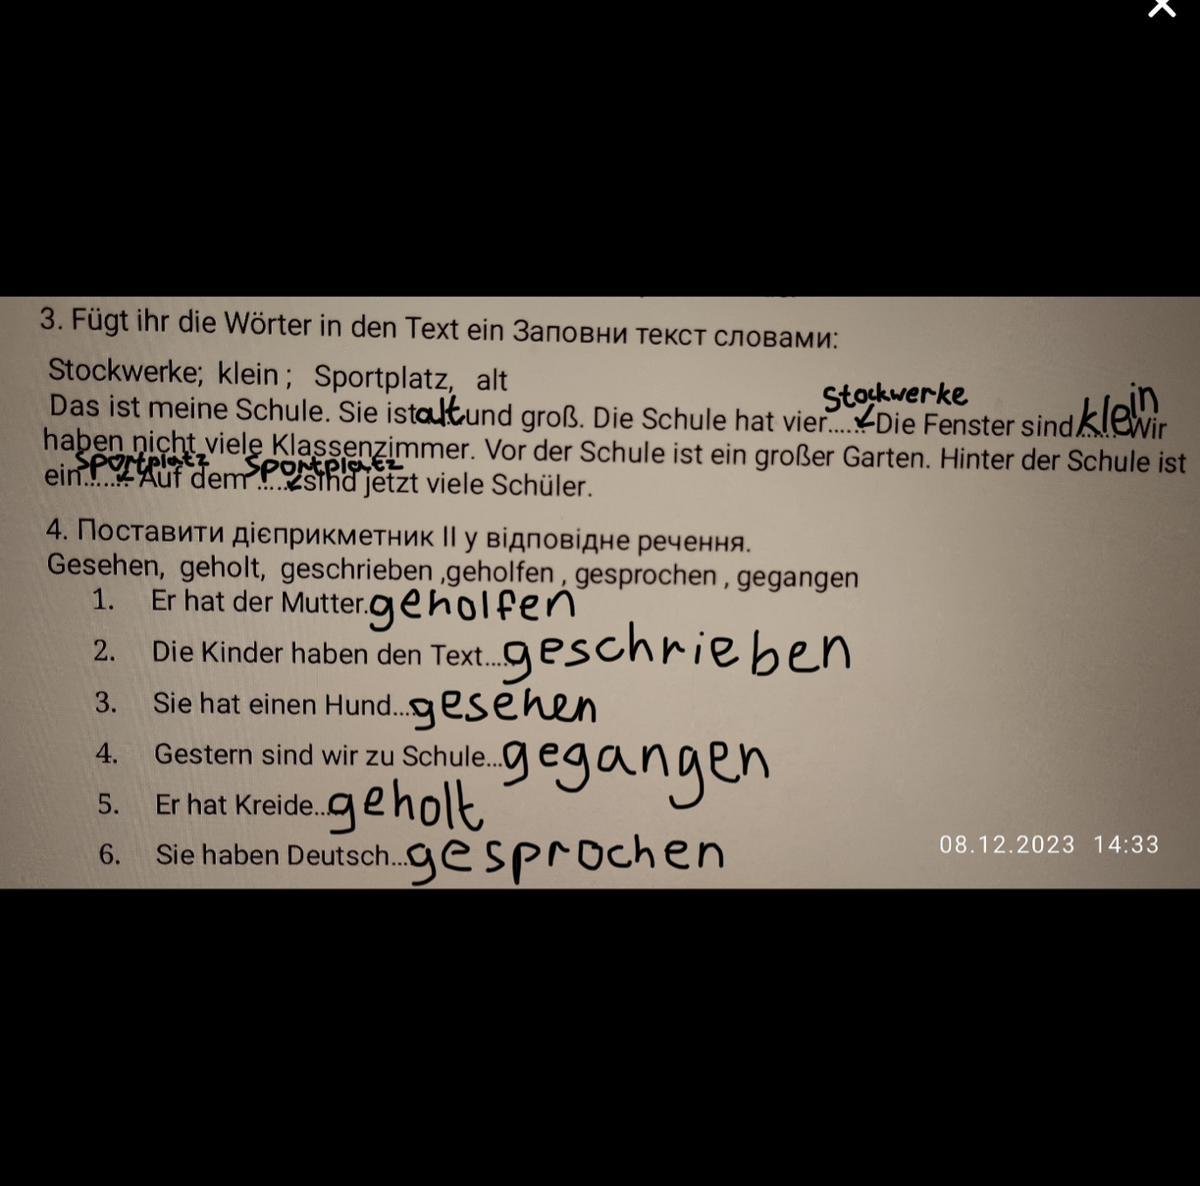 3. Fügt ihr die Wörter in den Text ein Заповни текст словами:
Stockwerke; klein ; Sportplatz, alt
Stockwerke
Das ist meine Schule. Sie ist alt und groß. Die Schule hat vier...... Die Fenster sind klein Wir
haben nicht viele Klassenzimmer. Vor der Schule ist ein großer Garten. Hinter der Schule ist
Sportplatz Sportplatz
ein...... Auf dem ...... sind jetzt viele Schüler.
4. Поставити дієприкметник II у відповідне речення.
Gesehen, geholt, geschrieben ,geholfen , gesprochen , gegangen
1. Er hat der Mutter. geholfen
2. Die Kinder haben den Text... geschrieben
3. Sie hat einen Hund... gesehen
4. Gestern sind wir zu Schule... gegangen
5. Er hat Kreide... geholt
6. Sie haben Deutsch... gesprochen
08.12.2023 14:33